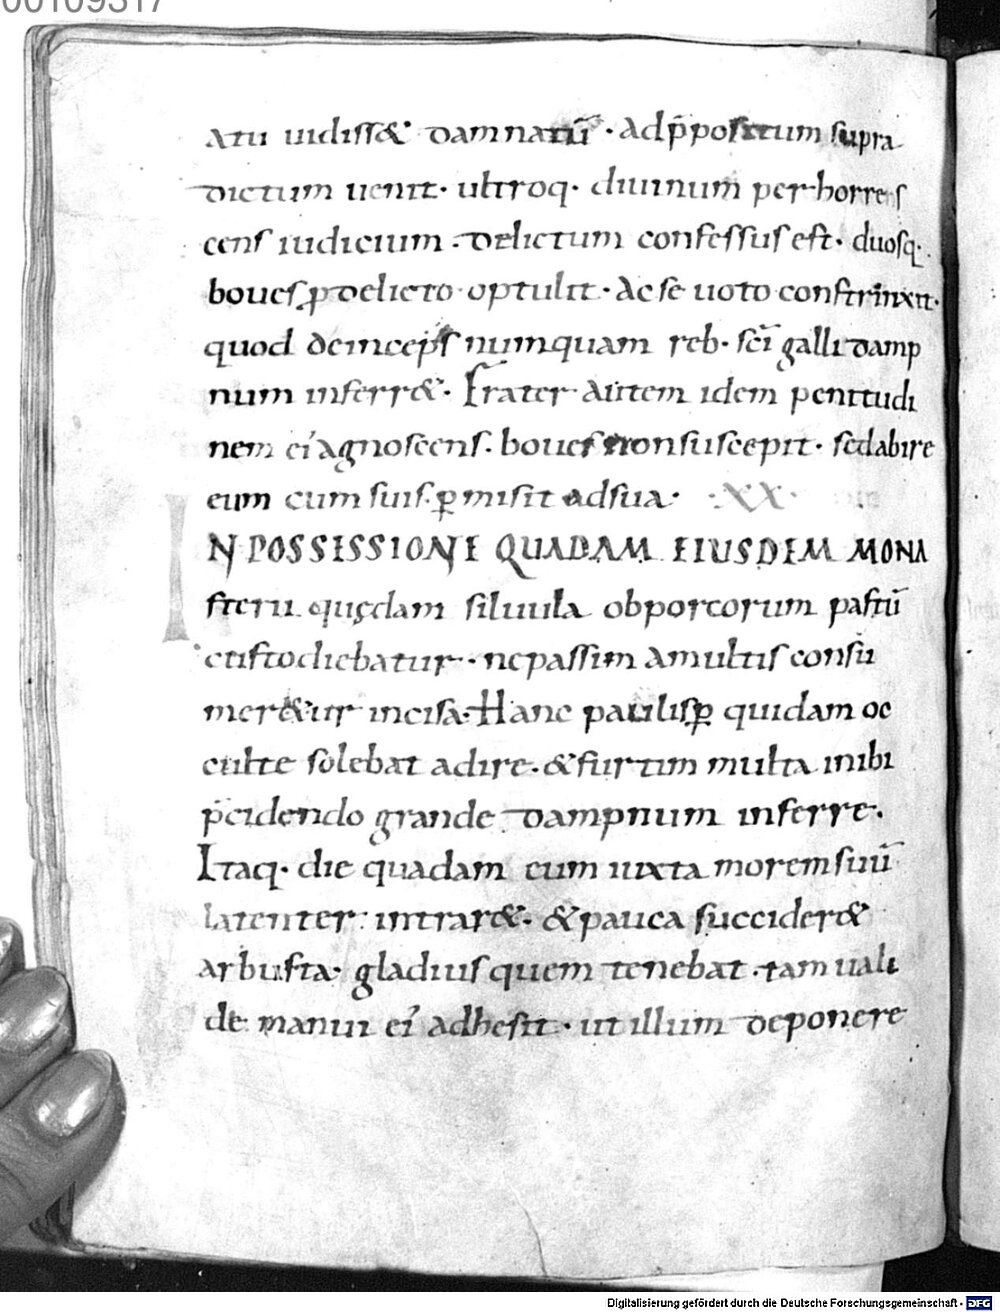 00109317
atu uidiss& damnatū · adp̄positum supra
dictum uenit · ultroq· diuinum perhorres
cens iudicium · delictum confessus est · duosq·
boues ꝓ delicto optulit · ac se uoto constrinxit ·
quod deinceps numquam reb· sc̄i galli damp
num inferr& · Frater autem idem penitudi
nem ei' agnoscens · boues non suscepit · sed abire
eum cum suis ꝑmisit ad sua · ·XX·
IN POSSESSIONE QUADAM EIUSDEM MONA
sterii quędam siluula ob porcorum pastū
custodiebatur · ne passim a multis consu
mer&ur incisa · Hanc paulisꝑ quidam oc
culte solebat adire · & furtim multa inibi
p̄cidendo grande dampnum inferre ·
Itaq· die quadam cum iuxta morem suū
latenter intrar& · & pauca succider&
arbusta · gladius quem tenebat · tam uali
de manui ei' adhesit · ut illum deponere
Digitalisierung gefördert durch die Deutsche Forschungsgemeinschaft - DFG